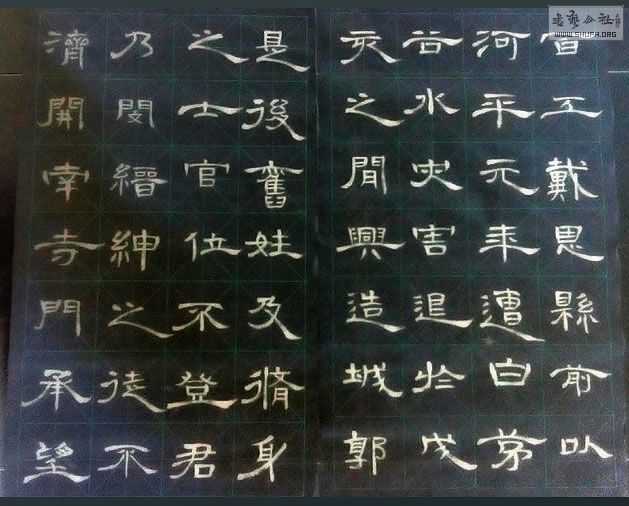 百工戴恩縣前以
河平元年遭白茅
谷水灾害退於戌
亥之間興造城郭
是後舊姓及脩身
之士官位不登君
乃閔縉紳之徒不
濟開南寺門承望
书艺公社
WWW.SHUFA.ORG